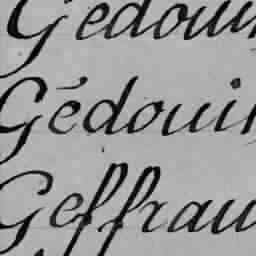 Gédouin
Gédouin
Geffrau